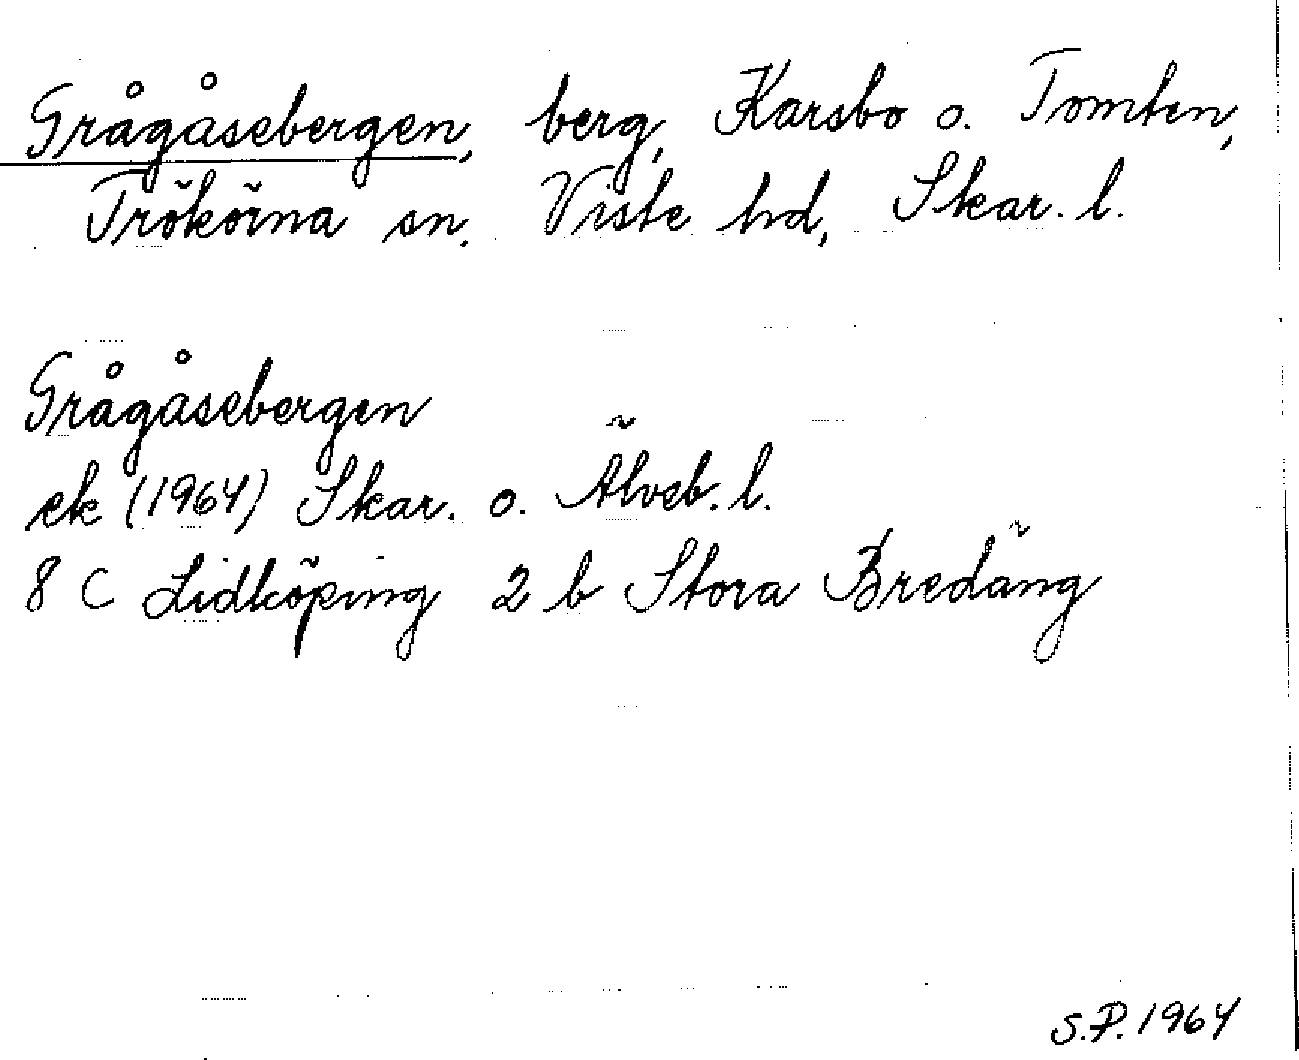 Grågåsebergen, berg, Karsbo o. Tomten,
Trökörna sn. Viste hd, Skar. l.
Grågåsebergen
ek (1964) Skar. o. Älvsb. l.
8 C Lidköping 2 b Stora Bredäng
S.P. 1964